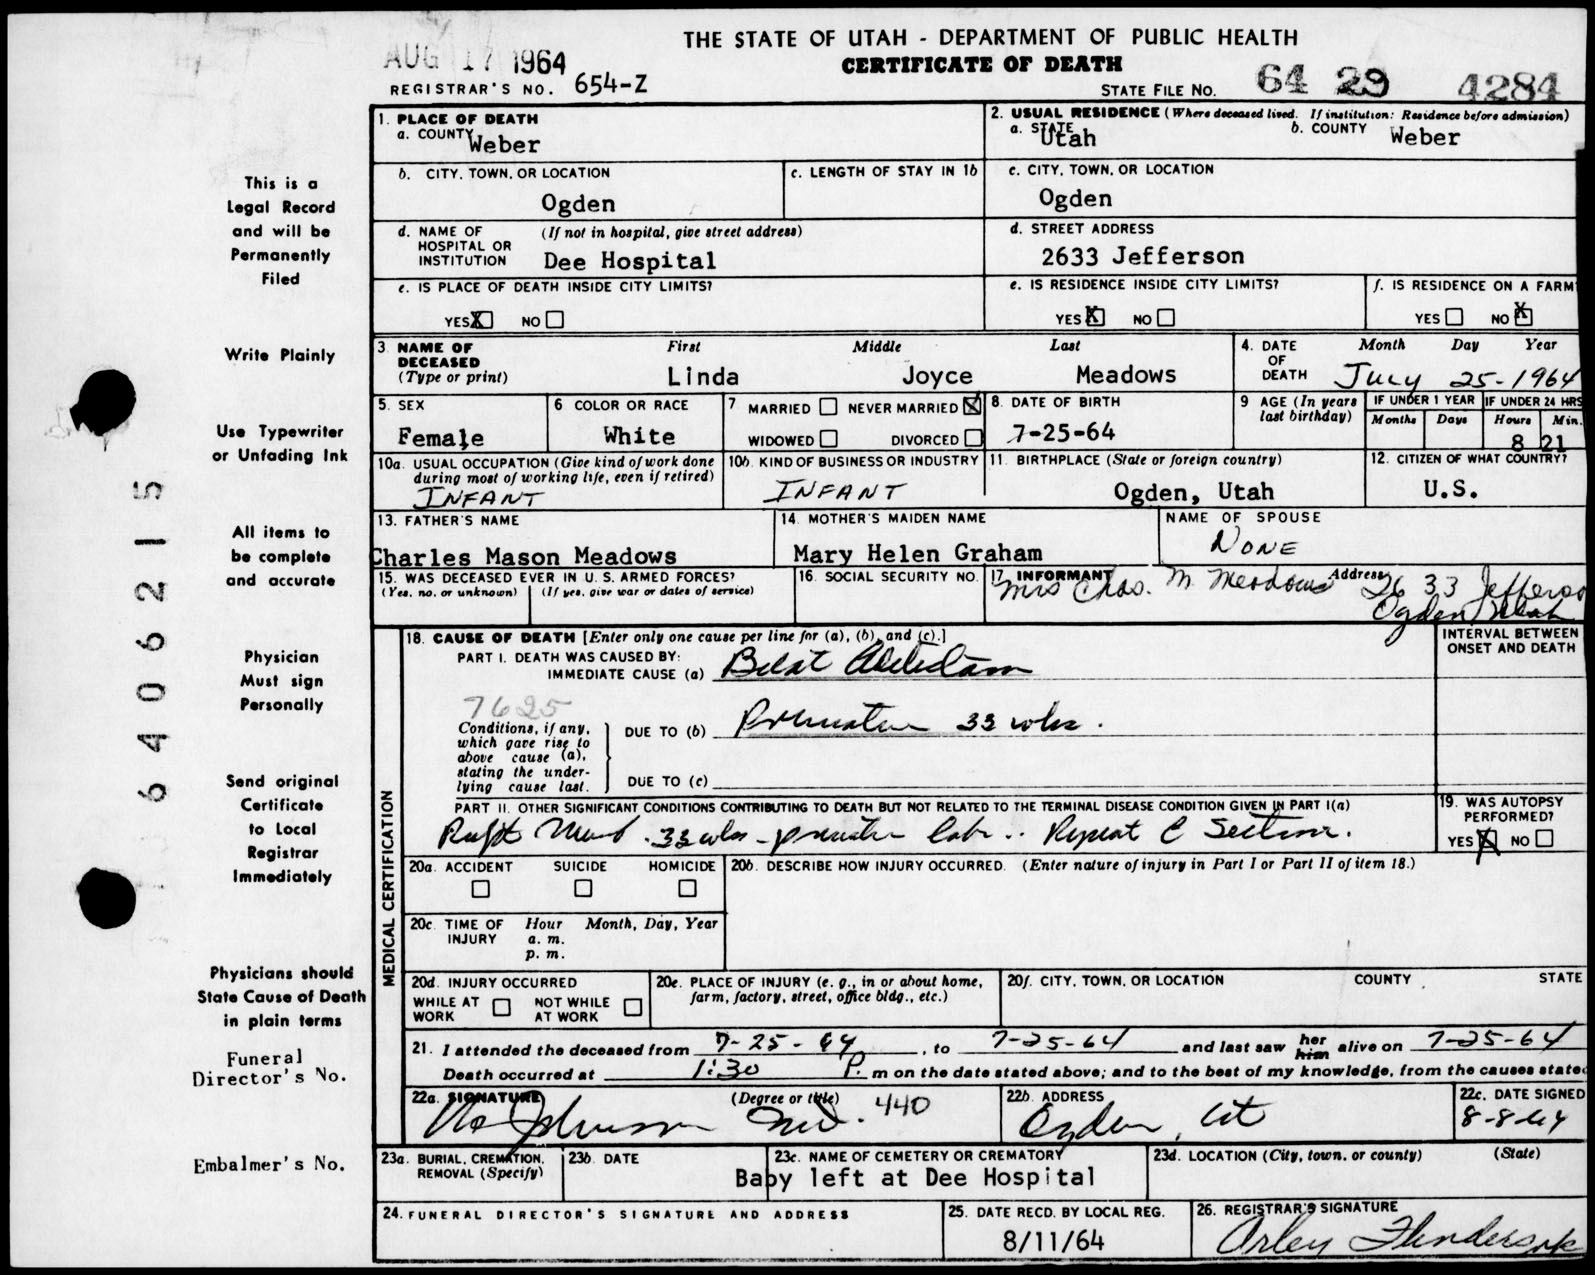 THE STATE OF UTAH - DEPARTMENT OF PUBLIC HEALTH
CERTIFICATE OF DEATH
AUG 17 1964
REGISTRAR'S NO. 654-Z
STATE FILE NO. 64 29 4284
This is a
Legal Record
and will be
Permanently
Filed
Write Plainly
Use Typewriter
or Unfading Ink
All items to
be complete
and accurate
Physician
Must sign
Personally
Send original
Certificate
to Local
Registrar
Immediately
Physicians should
State Cause of Death
in plain terms
Funeral
Director's No.
Embalmer's No.
64 06215
1. PLACE OF DEATH
a. COUNTY Weber
2. USUAL RESIDENCE (Where deceased lived. If institution: Residence before admission)
a. STATE Utah b. COUNTY Weber
b. CITY, TOWN, OR LOCATION
Ogden
c. LENGTH OF STAY IN 1b
c. CITY, TOWN, OR LOCATION
Ogden
d. NAME OF HOSPITAL OR INSTITUTION (If not in hospital, give street address)
Dee Hospital
d. STREET ADDRESS
2633 Jefferson
e. IS PLACE OF DEATH INSIDE CITY LIMITS?
YES X NO
e. IS RESIDENCE INSIDE CITY LIMITS?
YES X NO
f. IS RESIDENCE ON A FARM
YES NO X
3. NAME OF DECEASED (Type or print)
First Middle Last
Linda Joyce Meadows
4. DATE OF DEATH Month Day Year
July 25-1964
5. SEX
Female
6 COLOR OR RACE
White
7 MARRIED NEVER MARRIED X
WIDOWED DIVORCED
8. DATE OF BIRTH
7-25-64
9 AGE (In years last birthday)
IF UNDER 1 YEAR
Months Days
IF UNDER 24 HRS
Hours Min.
8 21
10a. USUAL OCCUPATION (Give kind of work done during most of working life, even if retired)
INFANT
10b. KIND OF BUSINESS OR INDUSTRY
INFANT
11. BIRTHPLACE (State or foreign country)
Ogden, Utah
12. CITIZEN OF WHAT COUNTRY?
U.S.
13. FATHER'S NAME
Charles Mason Meadows
14. MOTHER'S MAIDEN NAME
Mary Helen Graham
NAME OF SPOUSE
NONE
15. WAS DECEASED EVER IN U.S. ARMED FORCES?
(Yes, no, or unknown) (If yes, give war or dates of service)
16. SOCIAL SECURITY NO.
17. INFORMANT Address
Mrs Chas. M Meadows 2633 Jefferso
Ogden Utah
MEDICAL CERTIFICATION
18. CAUSE OF DEATH [Enter only one cause per line for (a), (b), and (c).]
PART I. DEATH WAS CAUSED BY:
IMMEDIATE CAUSE (a)
INTERVAL BETWEEN ONSET AND DEATH
7625
Conditions, if any, which gave rise to above cause (a), stating the underlying cause last.
DUE TO (b) 33 wks.
DUE TO (c)
PART II. OTHER SIGNIFICANT CONDITIONS CONTRIBUTING TO DEATH BUT NOT RELATED TO THE TERMINAL DISEASE CONDITION GIVEN IN PART I(a)
33 wks - Repeat C Section.
19. WAS AUTOPSY PERFORMED?
YES X NO
20a. ACCIDENT SUICIDE HOMICIDE
20b. DESCRIBE HOW INJURY OCCURRED. (Enter nature of injury in Part I or Part II of item 18.)
20c. TIME OF INJURY Hour Month, Day, Year
a. m.
p. m.
20d. INJURY OCCURRED
WHILE AT WORK NOT WHILE AT WORK
20e. PLACE OF INJURY (e. g., in or about home, farm, factory, street, office bldg., etc.)
20f. CITY, TOWN, OR LOCATION COUNTY STATE
21. I attended the deceased from 7-25-64, to 7-25-64 and last saw her him alive on 7-25-64
Death occurred at 1:30 P. m on the date stated above; and to the best of my knowledge, from the causes state
22a. SIGNATURE (Degree or title)
Johnson MD. 440
22b. ADDRESS
Ogden, Ut
22c. DATE SIGNED
8-8-64
23a. BURIAL, CREMATION, REMOVAL (Specify)
23b. DATE
23c. NAME OF CEMETERY OR CREMATORY
Baby left at Dee Hospital
23d. LOCATION (City, town, or county) (State)
24. FUNERAL DIRECTOR'S SIGNATURE AND ADDRESS
25. DATE RECD. BY LOCAL REG.
8/11/64
26. REGISTRAR'S SIGNATURE